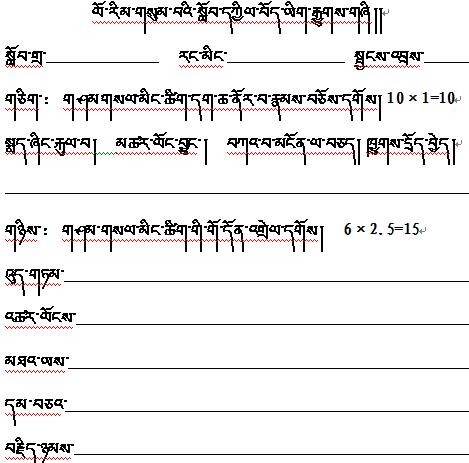 ལོ་རིམ་གསུམ་བའི་སློབ་དཀྱིལ་བོད་ཡིག་རྒྱུགས་གཞི།།
སློབ་གྲྭ་ རང་མིང་ སྦྱངས་འབྲས་
གཅིག་: གཤམ་གསལ་མིང་ཚིག་དག་ཆ་ནོར་བ་རྣམས་བཅོས་དགོས། 10 × 1=10
སྨད་ཞིང་རྐུལ་བ། མ་ཚར་ལོང་བྱུང་། བཀའ་བ་མངོན་ལ་བཅད། ཁྱུགས་དྲོད་བྱེད།
གཉིས་: གཤམ་གསལ་མིང་ཚིག་གི་གོ་དོན་འགྲེལ་དགོས། 6 × 2.5=15
འུད་གཏམ་
འཆར་ལོངས་
མཐའ་ཡས་
དམ་བཅའ་
བརྗིད་ཉམས་